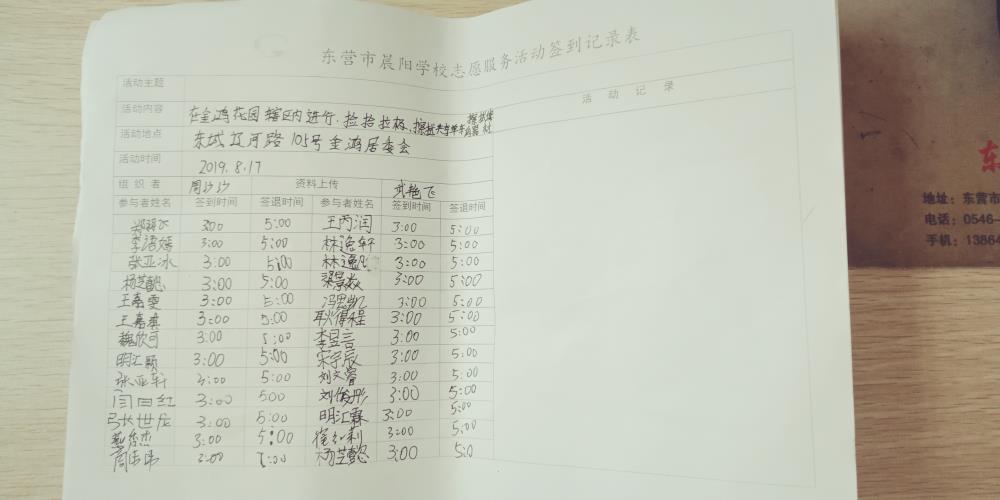 东营市晨阳学校志愿服务活动签到记录表
活动主题
活动记录
活动内容 在金鸿花园辖区内进行.捡拾垃圾、
活动地点 东城辽河路105号金鸿居委会
活动时间 2019.8.17
组织者 周沙沙 资料上传 武艳飞
参与者姓名 签到时间 签退时间 参与者姓名 签到时间 签退时间
3:00 5:00 王芮润 3:00 5:00
李潽嫣 3:00 5:00 林逸轩 3:00 5:00
张亚冰 3:00 5:00 林逸 3:00 5:00
杨芝懿 3:00 5:00 3:00 5:00
王嘉雯 3:00 5:00 冯思凯 3:00 5:00
王嘉 3:00 5:00 耿得程 3:00 5:00
魏欣可 3:00 5:00 李昱言 3:00 5:00
明汇颖 3:00 5:00 宋宇辰 3:00 5:00
张亚轩 3:00 5:00 刘文睿 3:00 5:00
闫四红 3:00 500 刘俊彤 3:00 5:00
张世龙 3:00 5:00 明汇霖 3:00 5:00
3:00 5:00 崔红莉 3:00 5:00
周伟伟 3:00 5:00 杨芝懿 3:00 5:0
东
地址：东营市
电话：0546-
手机：13864